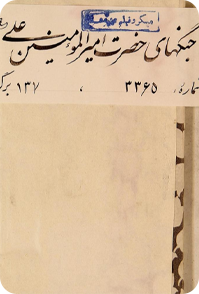 میکروفیلم شد
جنگهای حضرت امیرالمومنین علی
شماره، ۳۳۶۵ ، ۱۳۷ برگ